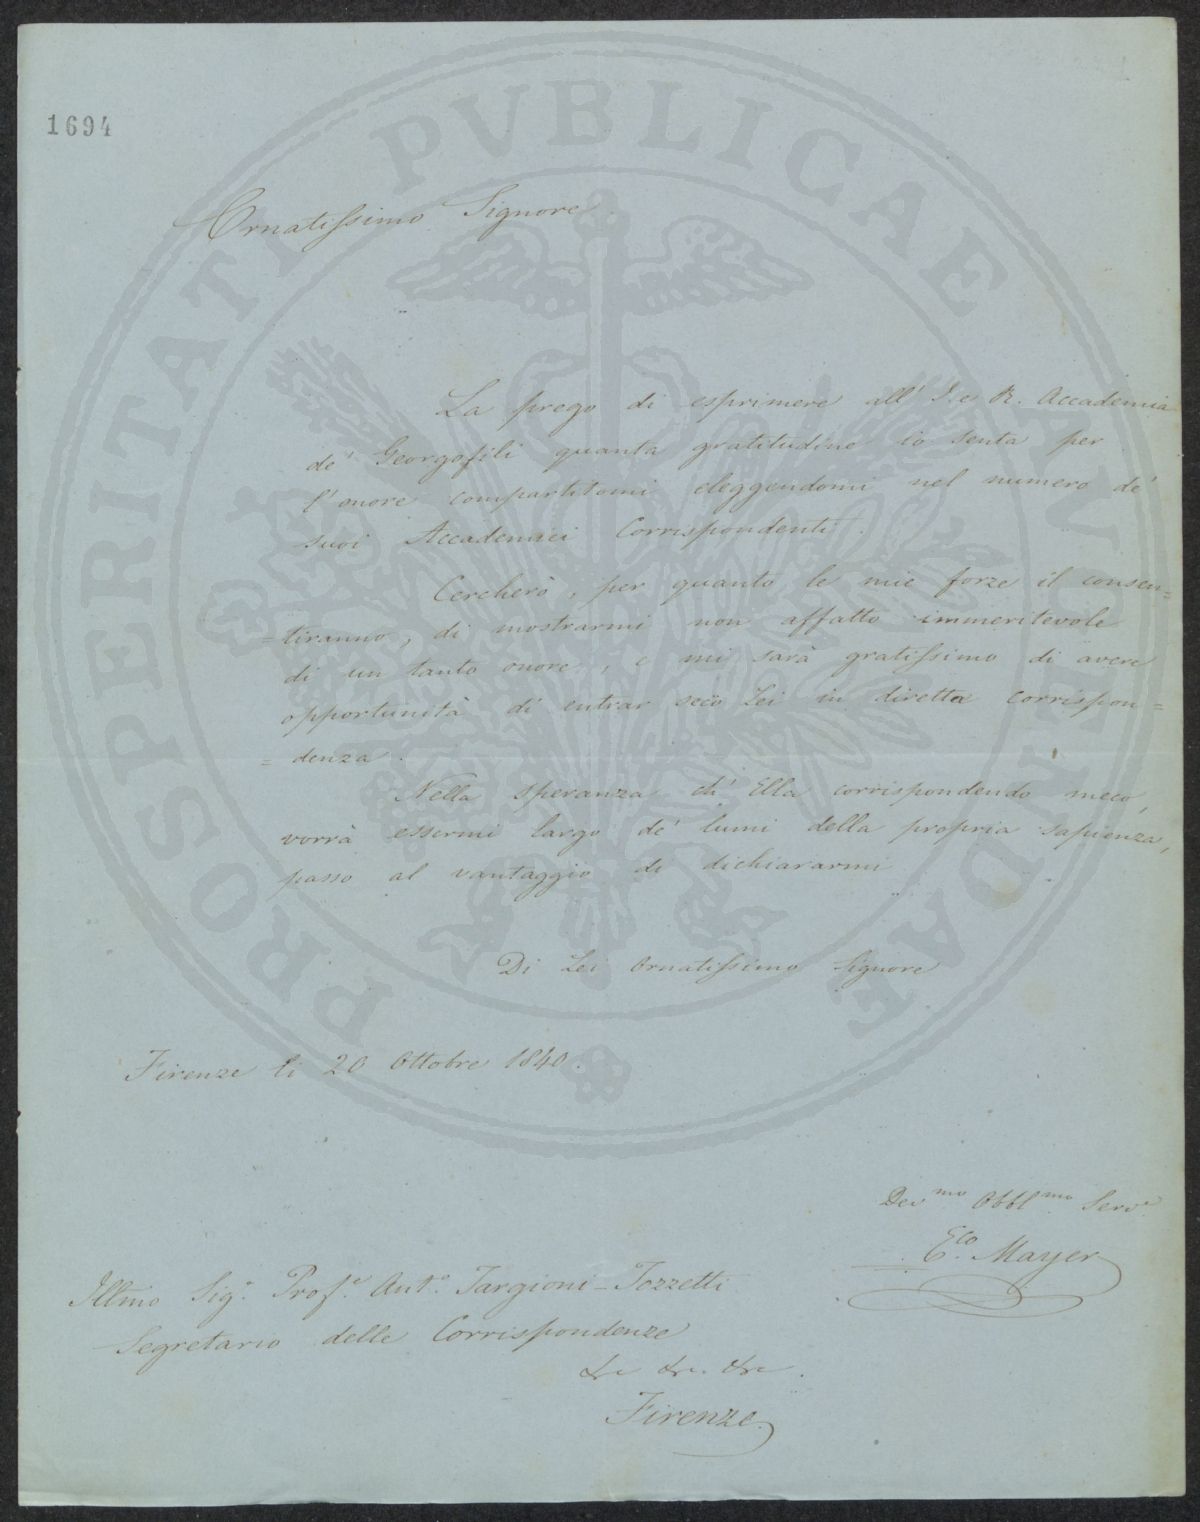 1694
PROSPERITATI PVBLICAE AVGENDAE
Ornatissimo Signore
La prego di esprimere all' I. e R. Accademia
de' Georgofili quanta gratitudine io senta per
l'onore compartitomi eleggendomi nel numero de'
suoi Accademici Corrispondenti.
Cercherò, per quanto le mie forze il consen=
=tiranno, di mostrarmi non affatto immeritevole
di un tanto onore, e mi sarà gratissimo di avere
opportunità di entrar seco Lei in diretta corrispon=
=denza.
Nella speranza ch' Ella corrispondendo meco,
vorrà essermi largo de' lumi della propria sapienza,
passo al vantaggio di dichiararmi
Di Lei Ornatissimo Signore
Firenze li 20 Ottobre 1840.
Dev.mo Obbl.mo Serv.e
E.co Mayer
Illmo Sig.r Prof.e Ant.o Targioni-Tozzetti
Segretario delle Corrispondenze
&c &c. &c.
Firenze.